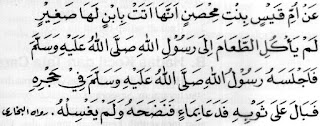 عَنْ اُمِّ قَيْسٍ بِنْتِ مُحْصِنٍ اَنَّهَا اَتَتْ بِابْنٍ لَهَا صَغِيْرٍ
لَمْ يَأْكُلِ الطَّعَامَ اِلَى رَسُوْلِ اللهِ صَلَّى اللهُ عَلَيْهِ وَسَلَّمَ
فَاَجْلَسَهُ رَسُوْلُ اللهِ صَلَّى اللهُ عَلَيْهِ وَسَلَّمَ فِى حَجْرِهِ
فَبَالَ عَلَى ثَوْبِهِ فَدَعَا بِمَاءٍ فَنَضَحَهُ وَلَمْ يَغْسِلْهُ . رواه البخارى